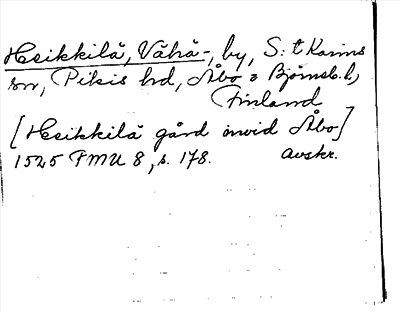 Heikkilä, Vähä-, by, S:t Karins
sn, Pikis hd, Åbo o Björneb. l,
Finland
[Heikkilä gård invid Åbo]
1525 FMU 8, s. 178. Avskr.